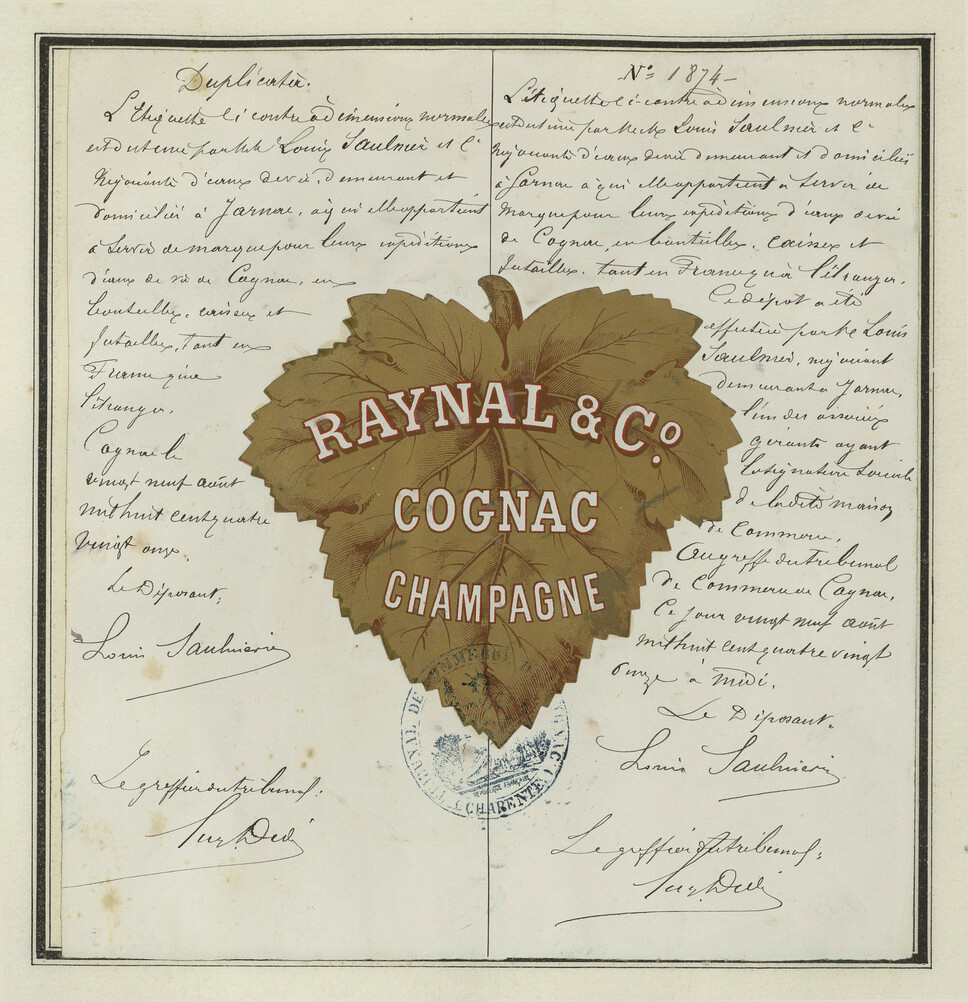 Duplicata.
L'étiquette ci contre à dimensions normales
est destinée par Mr Louis Saulnier et Cie
Négociants d'eaux de vie, demeurant et
domiciliés à Jarnac, à qui elle appartient
à servir de marque pour leurs expéditions
d'eaux de vie de Cognac, en
bouteilles, caisses et
futailles, tant en
France qu'à
l'étranger.
Cognac le
vingt neuf août
mil huit cent quatre
vingt onze.
Le Déposant,
Louis Saulnier
Le greffier du tribunal:
No 1874
L'étiquette ci-contre à dimensions normales
est destinée par Louis Saulnier et Cie
Négociants d'eaux de vie demeurant et domiciliés
à Jarnac à qui elle appartient à servir de
marque pour leurs expéditions d'eaux de vie
de Cognac, en bouteilles, caisses et
futailles, tant en France qu'à l'étranger.
Ce dépôt a été
effectué par Mr Louis
Saulnier, négociant
demeurant à Jarnac,
l'un des associés
gérants ayant
la signature sociale
de la dite maison
de Commerce,
Au greffe du tribunal
de Commerce de Cognac,
Ce jour vingt neuf août
mil huit cent quatre vingt
onze à midi.
Le Déposant.
Louis Saulnier
Le greffier du tribunal:
RAYNAL & Co.
COGNAC
CHAMPAGNE
TRIBUNAL DE COMMERCE DE COGNAC (CHARENTE)
RÉPUBLIQUE FRANÇAISE